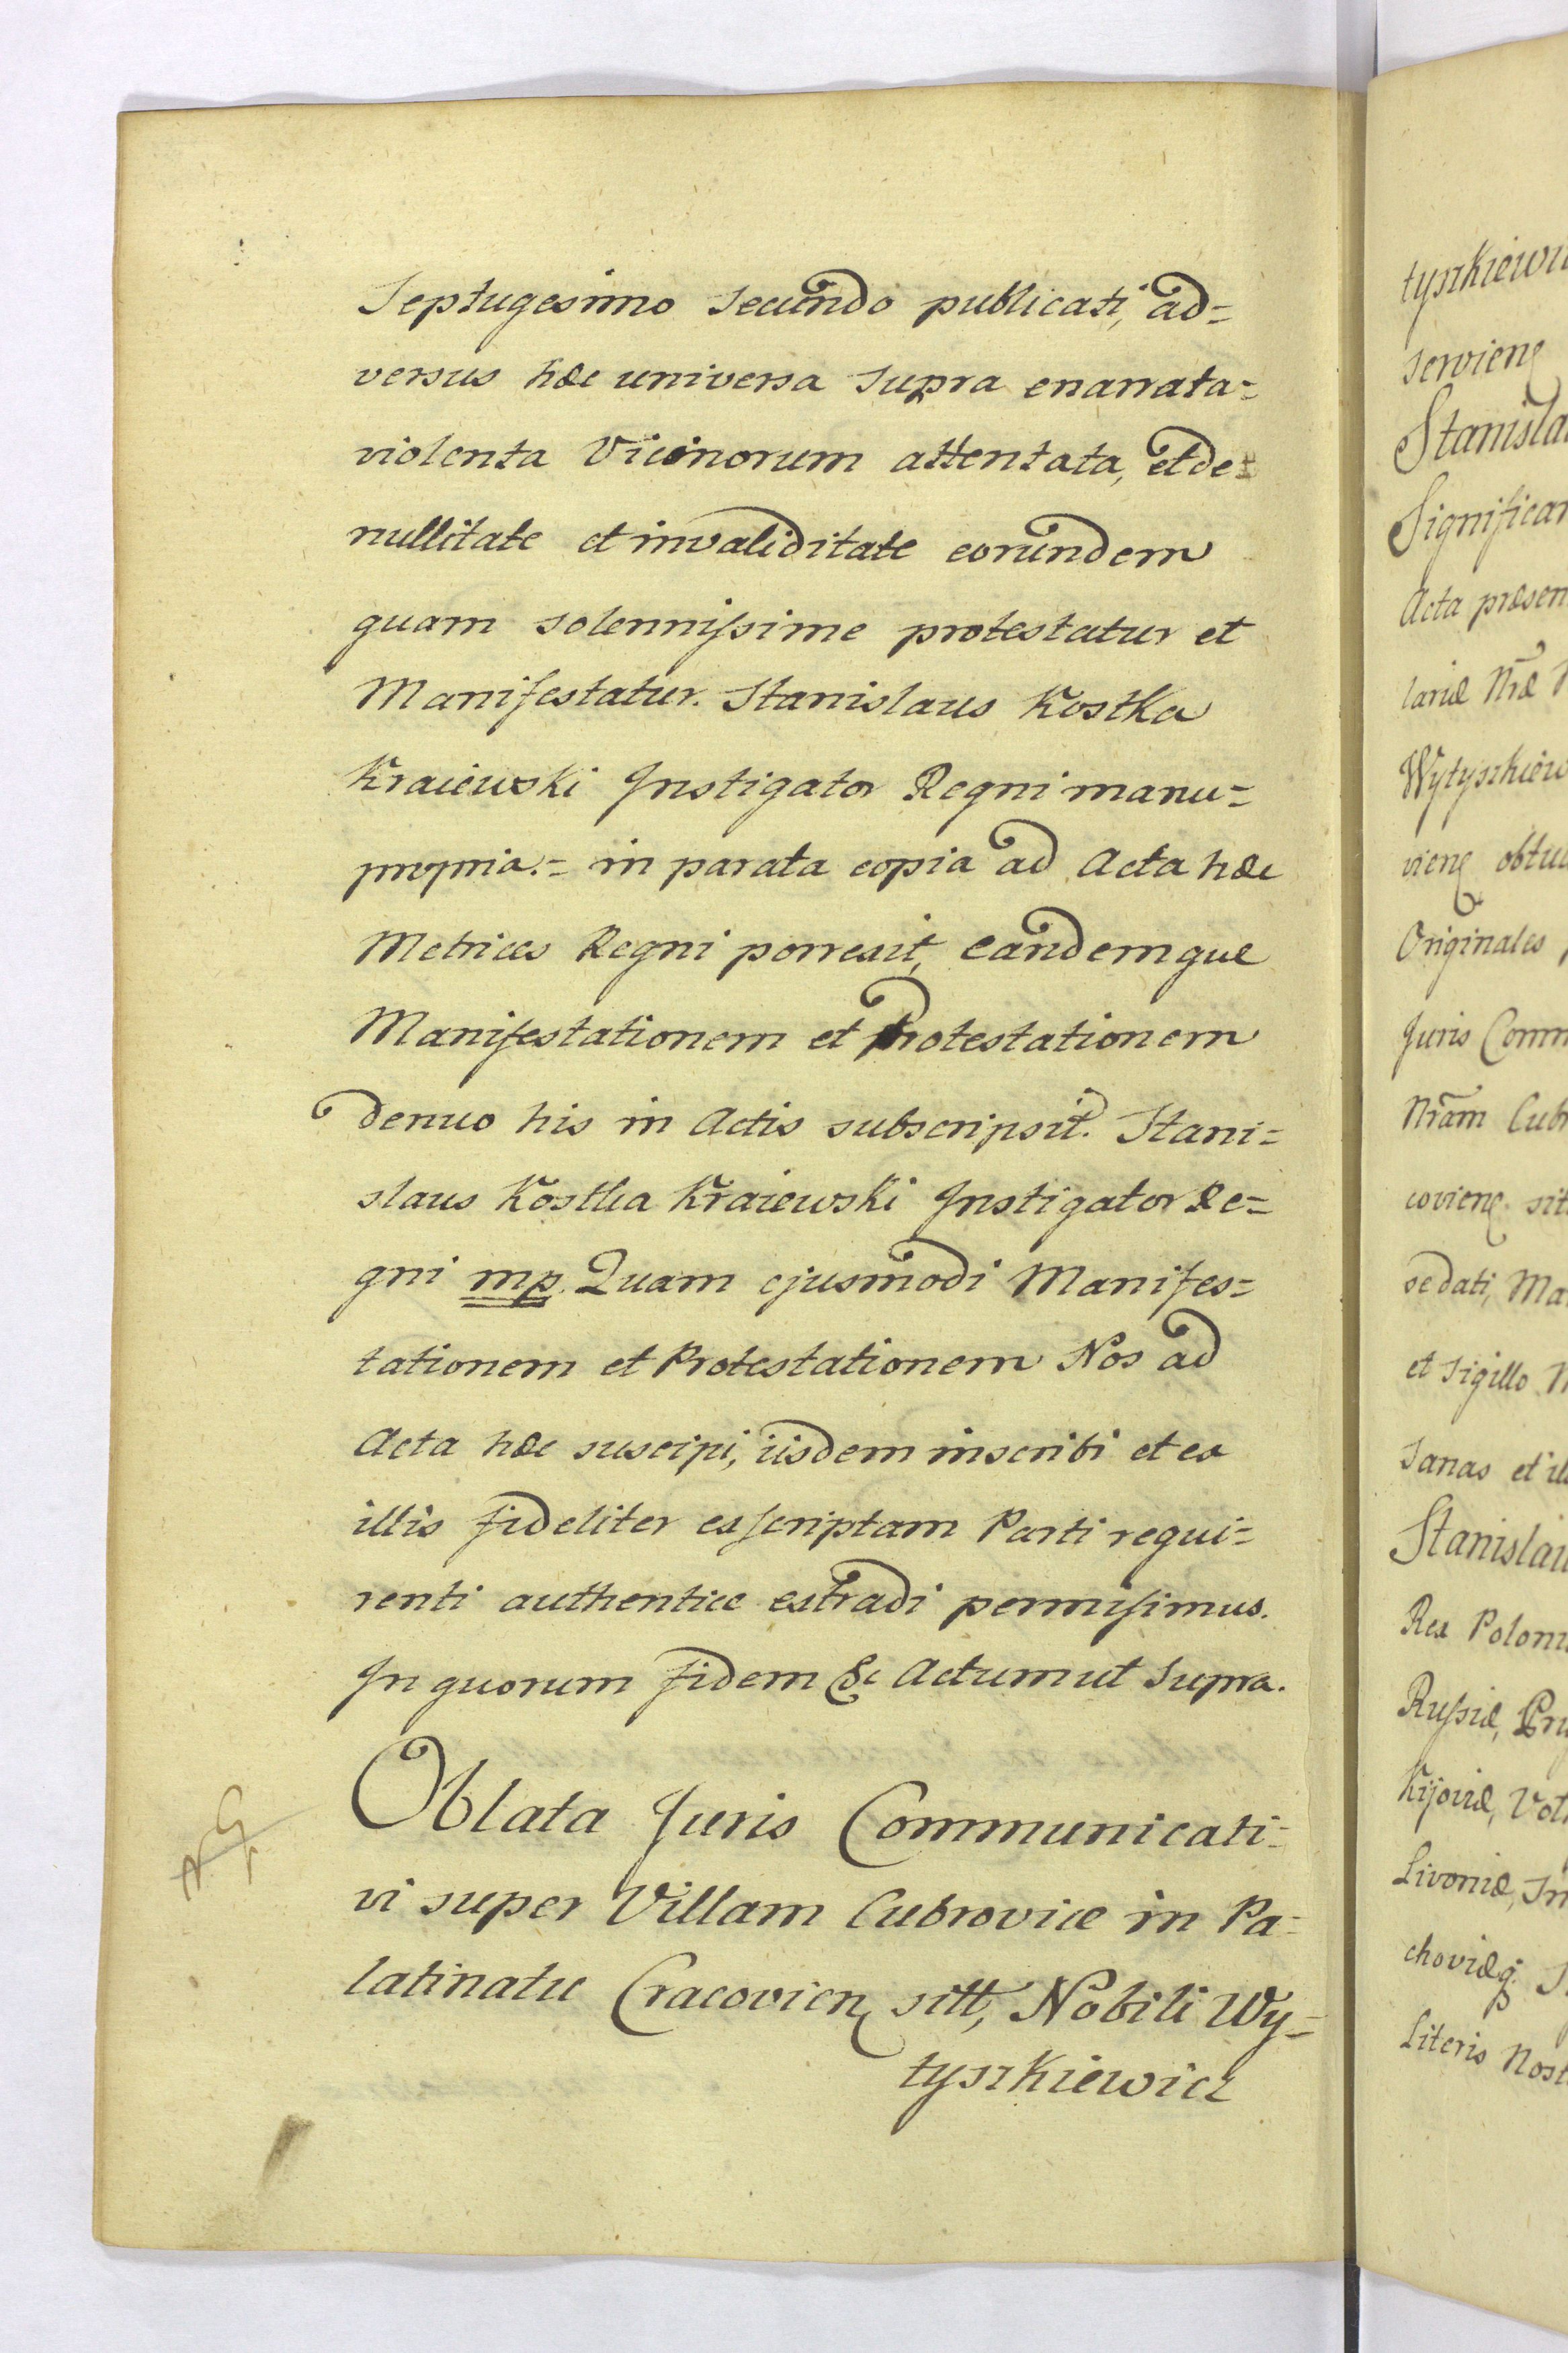 Septugesimo Secundo publicati, ad=
versus hæc universa supra enarrata=
violenta Vicinorum attentata, et de=
nullitate et invaliditate eorundem
quam solennissime protestatur et
Manifestatur. Stanislaus Kostka
Kraiewski Instigator Regni manu=
propria.= in parata copia ad Acta hæc
Metrices Regni porrexit, eandemque
Manifestationem et Protestationem
denuo his in Actis subscripsit. Stani=
slaus Kostka Kraiewski Instigator Re=
gni mp. Quam ejusmodi Manifes=
tationem et Protestationem Nos ad
Acta hæc suscipi, iisdem inscribi et ex
illis fideliter exscriptam Parti requi=
renti authentice extradi permisimus.
In quorum fidem &c Actum ut Supra.
Oblata Juris Communicati=
vi super Villam Cubrovice in Pa=
latinatu Cracovien sitt, Nobili Wy=
tyszkiewicz
tyszkiewi
servien
Stanisla
Significa
Acta præsen
lariæ Nræ
Wytyszkiew
vien obtu
Originales
Juris Comm
Nram Cub
covien. sit
se dati, Ma
et sigillo
Sanas et il
Stanislau
Rex Poloni
Russiæ, Pru
Kijoviæ, Vol
Livoniæ, Sm
choviæq. 
Literis Nost